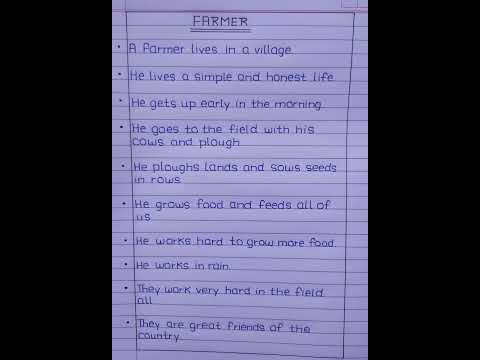 FARMER
• A farmer lives in a village
• He lives a simple and honest life
• He gets up early in the morning
• He goes to the field with his
cows and plough
• He ploughs lands and sows seeds
in rows
• He grows food and feeds all of
us
• He works hard to grow more food
• He works in rain
• They work very hard in the field
all
• They are great friends of the
country